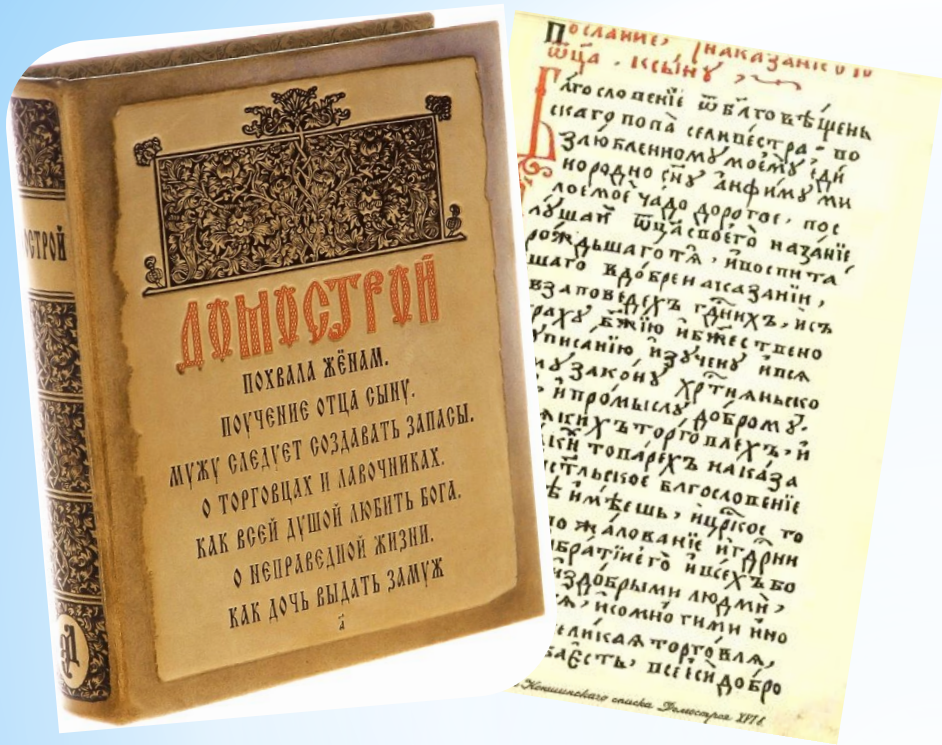 ОСТРОЙ
ДОМОСТРОЙ
ПОХВАЛА ЖЁНАМ.
ПОУЧЕНИЕ ОТЦА СЫНУ.
МУЖУ СЛЕДУЕТ СОЗДАВАТЬ ЗАПАСЫ.
О ТОРГОВЦАХ И ЛАВОЧНИКАХ.
КАК ВСЕЙ ДУШОЙ ЛЮБИТЬ БОГА.
О НЕПРАВЕДНОЙ ЖИЗНИ.
КАК ДОЧЬ ВЫДАТЬ ЗАМУЖ
Посланиѐ, ӏнаказаниѐ ѿ
ѿца . ксы́нꙋ ,
Блгословенїе ѿ блговѣщень
скаго попа̀ селивестра ̀ во
злюбленномꙋ моемꙋ̀ еди
нородно сн҃ꙋ а҆нфимꙋ ми
лоемое ча́до дорогое , пос
лꙋшаи̑ ѿца̀своего̀ наза́нїе
рождьшаготѧ̀ , и҆воспита
вшаго вдо́бренаказанїи ,
взаповедехъ гдⷭнихъ , исъ
страхꙋ бж҃їю ибжⷭествено
писанїю и҆зꙋченꙋ и҆всѧ
мꙋзако́нꙋ хрⷭтиꙗньско
и҆промыслꙋ̀ до́бромꙋ .
торго́влехъ , и҆
товарехъ наказа
блгословенїе
и҆мѣешь , и҆црⷭкое то
жа́лованїе и҆гдⷭрни
бра́тїиего̀ и҆всехъ бо
издо́брыми людми̑ ,
исомно́гими и҆но
великаѧ торго́влѧ ,
всѐїси̑ до́бро
Коншинскаго списка Домостроя XVI в.